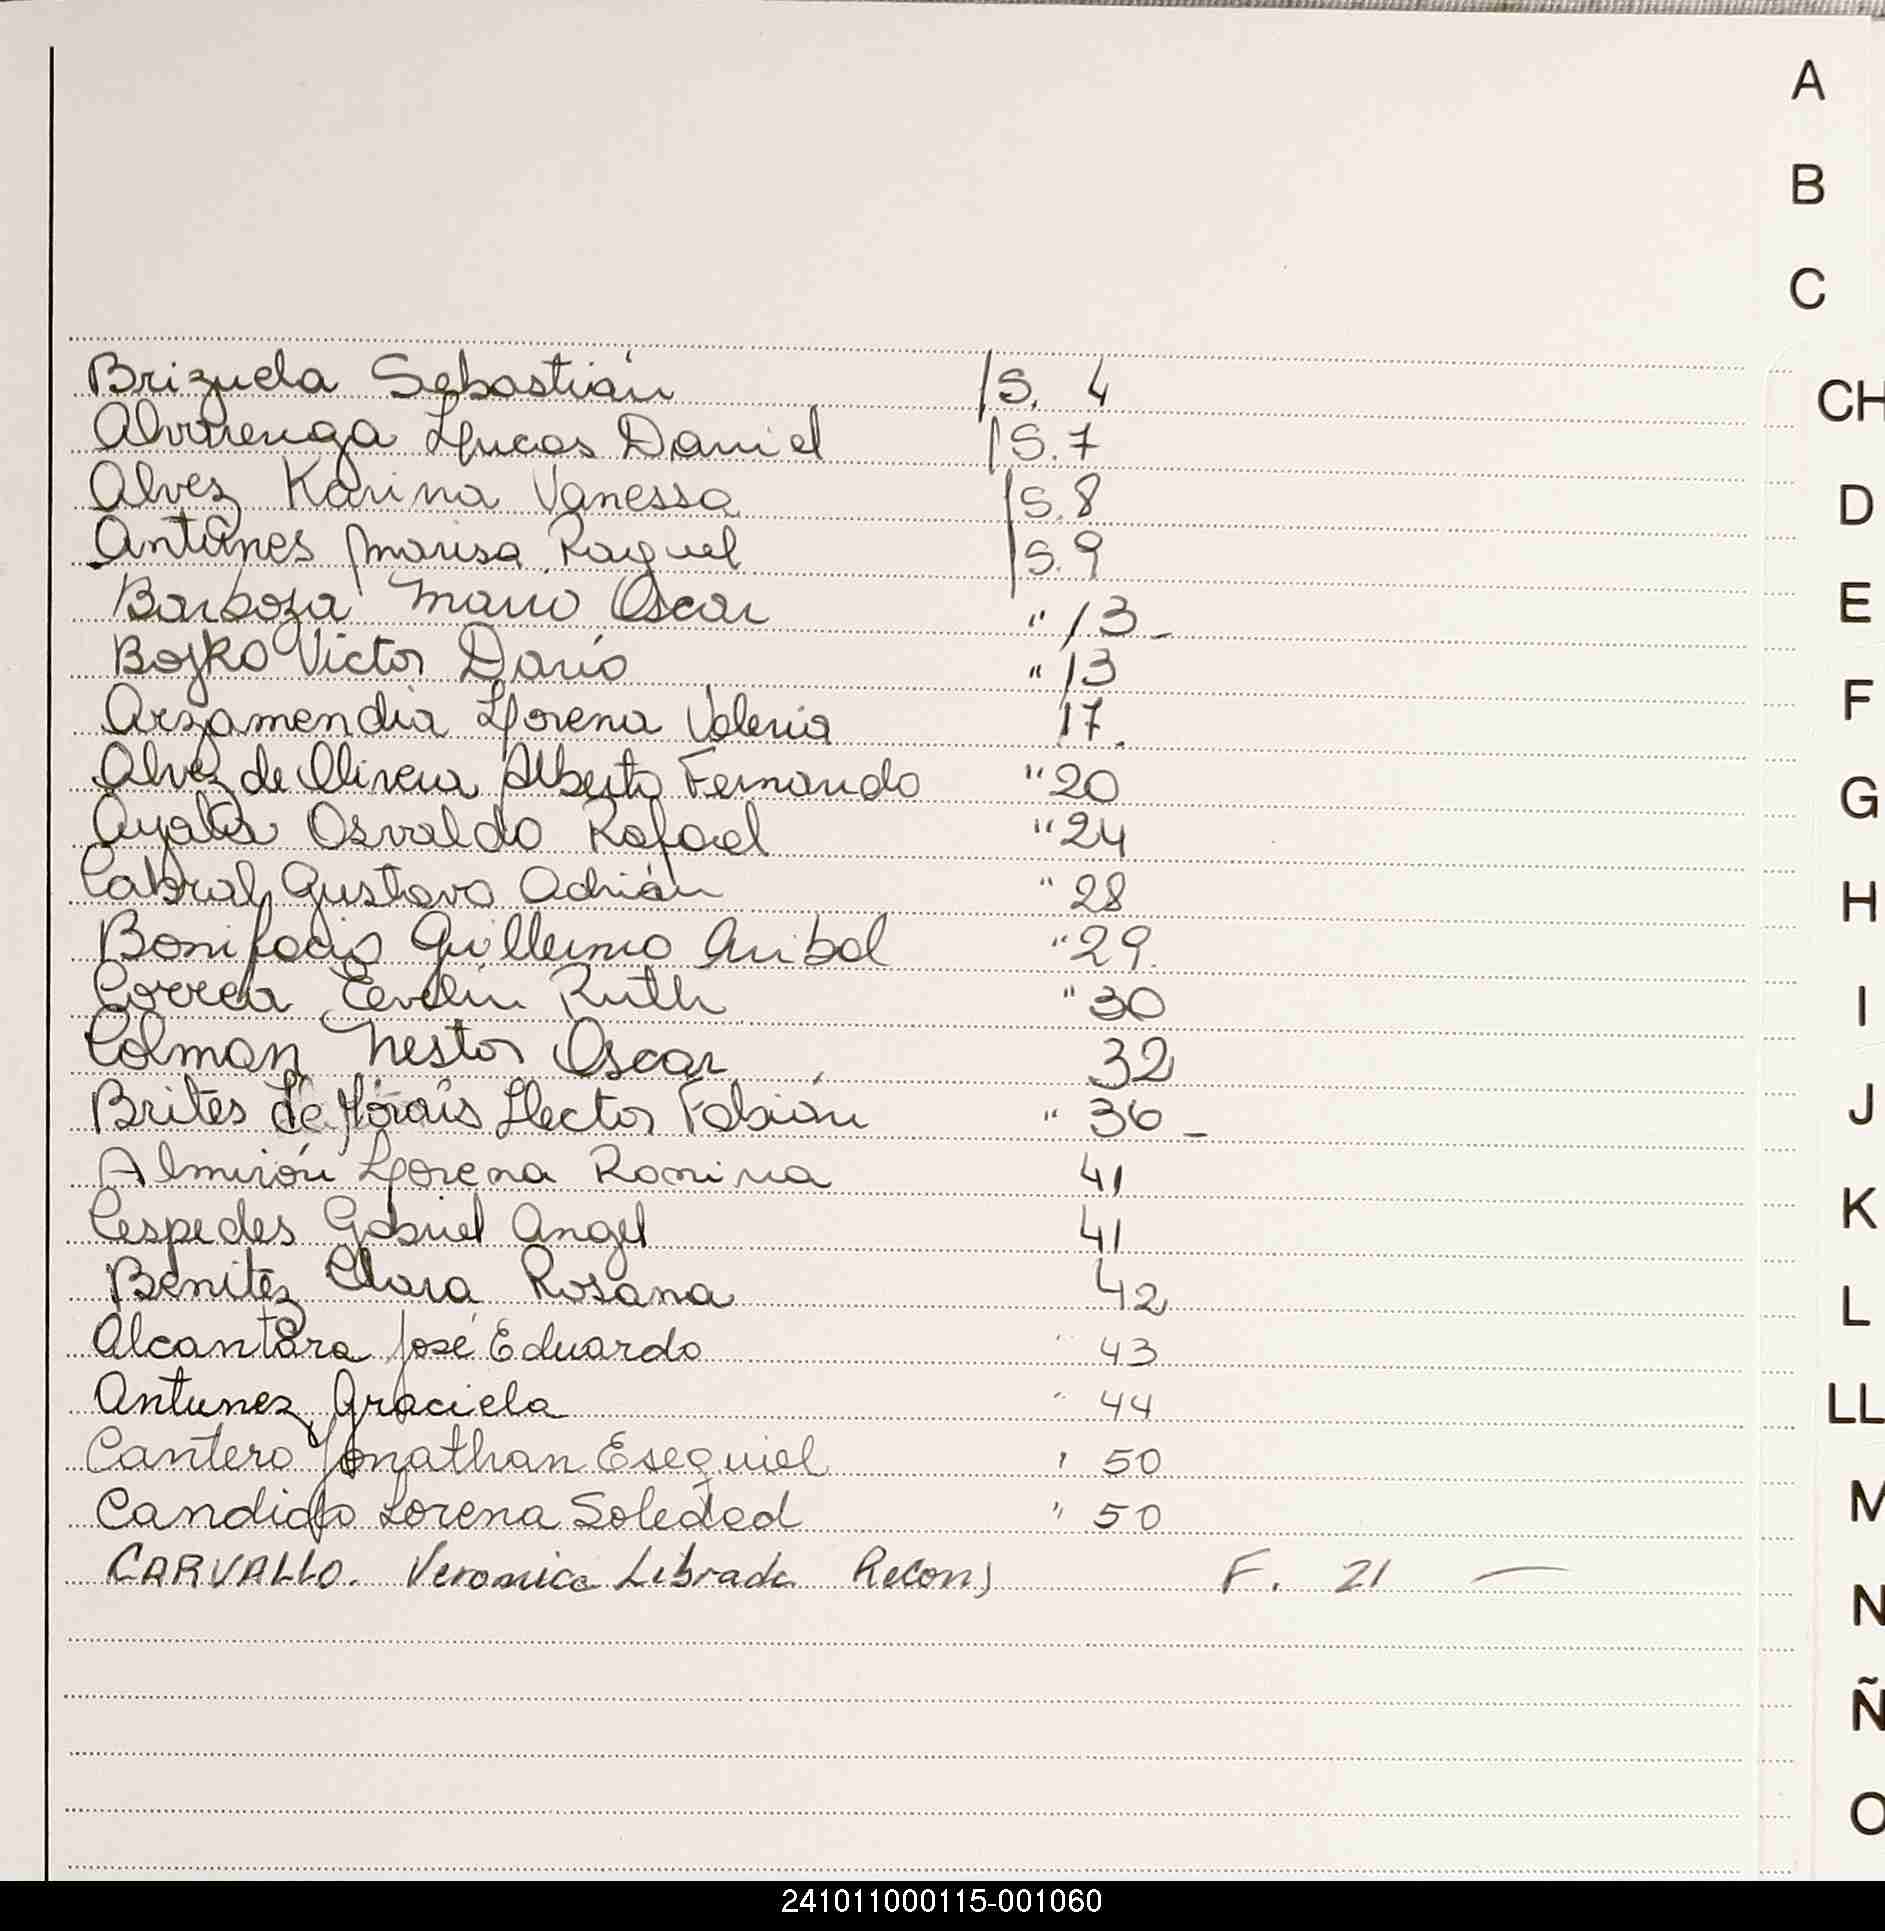 A
B
C
Brizuela Sebastián /S. 4
CH
Alvirenga Lucas Daniel /S. 7
Alvez Karina Vanessa /S. 8
D
Antúnes Marisa Raquel /S. 9
Barboza Mario Oscar " 13 -
E
Bojko Victor Darío " 13
Arzamendia Lorena Valeria 17.
F
Alvez de Olivera Alberto Fernando " 20
G
Ayala Osvaldo Rafael " 24
Cabral Gustavo Adrián " 28
H
Bonifacio Guillermo Anibal " 29.
Correa Eevelin Ruth " 30
I
Colman Nestor Oscar 32
Brites de Morais Hector Fabián " 36 -
J
Almirón Lorena Romina 41
K
Cespedes Gabriel Angel 41
Benitez Clara Rosana 42
L
Alcantara José Eduardo " 43
Antunez Graciela " 44
LL
Cantero Jonathan Esequiel " 50
Candido Lorena Soledad " 50
M
CARVALLO. Veronica Librada Recon) F. 21 —
N
Ñ
O
241011000115-001060